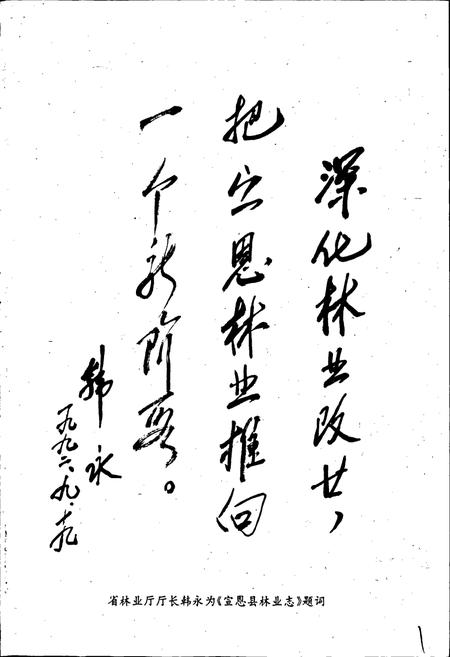 深化林业改廿，
把宣恩林业推向
一个新阶段。
韩永
一九九六.九.十九
省林业厅厅长韩永为《宣恩县林业志》题词